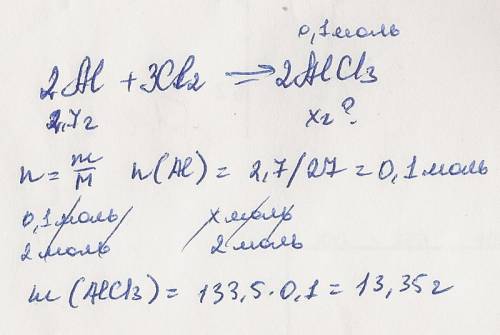 0,1 моль
2Al + 3Cl2 => 2AlCl3
2,7г xг?
n = m/M n(Al) = 2,7/27 = 0,1 моль
0,1 моль x моль
2 моль 2 моль
m(AlCl3) = 133,5·0,1 = 13,35г